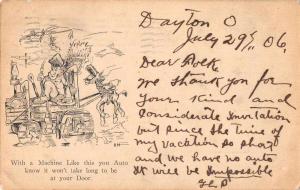 Dayton O
July 29th, 06.
Dear
We thank you for
your kind and
Considerate Invitation
but since the time of
my vacation so short
and we have no auto
It will be Impossible
With a Machine Like this you Auto
know it won't take long to be
at your Door.